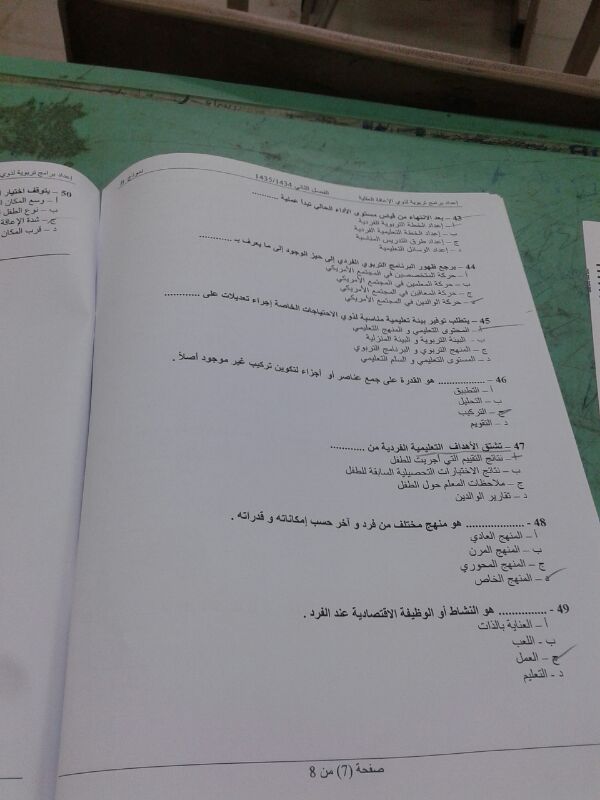 إعداد برامج تربوية لذوي الاعاقة العقلية
الفصل الثاني 1435/1434
نموذج
43 – بعد الانتهاء من قياس مستوى الأداء الحالي تبدأ عملية ..........
أ – إعداد الخطة التربوية الفردية
ب – إعداد الخطة التعليمية الفردية
ج – إعداد طرق التدريس المناسبة
د – إعداد الوسائل التعليمية
44 – يرجع ظهور البرنامج التربوي الفردي إلى حيز الوجود إلى ما يعرف بـ ............
أ – حركة المتخصصين في المجتمع الأمريكي
ب – حركة المعلمين في المجتمع الأمريكي
ج – حركة المعاقين في المجتمع الأمريكي
د – حركة الوالدين في المجتمع الأمريكي
45 – يتطلب توفير بيئة تعليمية مناسبة لذوي الاحتياجات الخاصة إجراء تعديلات على ............
أ – المحتوى التعليمي و المنهج التعليمي
ب – البيئة التربوية و البيئة المنزلية
ج – المنهج التربوي و البرنامج التربوي
د – المستوى التعليمي و السلم التعليمي
46 - ................ هو القدرة على جمع عناصر أو أجزاء لتكوين تركيب غير موجود أصلاً .
أ – التطبيق
ب – التحليل
ج – التركيب
د – التقويم
47 – تشتق الأهداف التعليمية الفردية من ............
أ – نتائج التقييم التي أجريت للطفل
ب – نتائج الاختبارات التحصيلية السابقة للطفل
ج – ملاحظات المعلم حول الطفل
د – تقارير الوالدين
48 - ................ هو منهج مختلف من فرد و آخر حسب إمكاناته و قدراته .
أ – المنهج العادي
ب – المنهج المرن
ج – المنهج المحوري
د – المنهج الخاص
49 - ............... هو النشاط أو الوظيفة الاقتصادية عند الفرد .
أ – العناية بالذات
ب - اللعب
ج – العمل
د - التعليم
صفحة (7) من 8
إعداد برامج تربوية لذوي
50 – يتوقف اختيار
أ – وسع المكان
ب – نوع الطفل
ج – شدة الإعاقة
د – قرب المكان